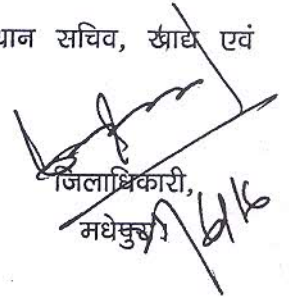 थान सचिव, खाद्य एवं
जिलाधिकारी,
मधेपुरा।